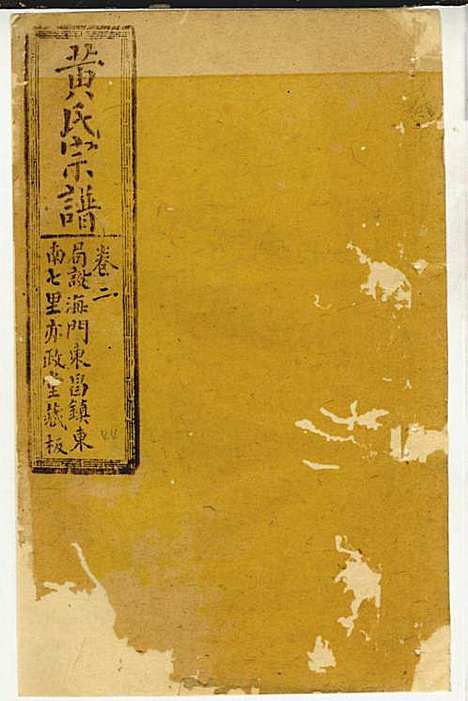 黄氏宗譜
卷二
局設海門東昌鎮東
南七里亦政堂藏板